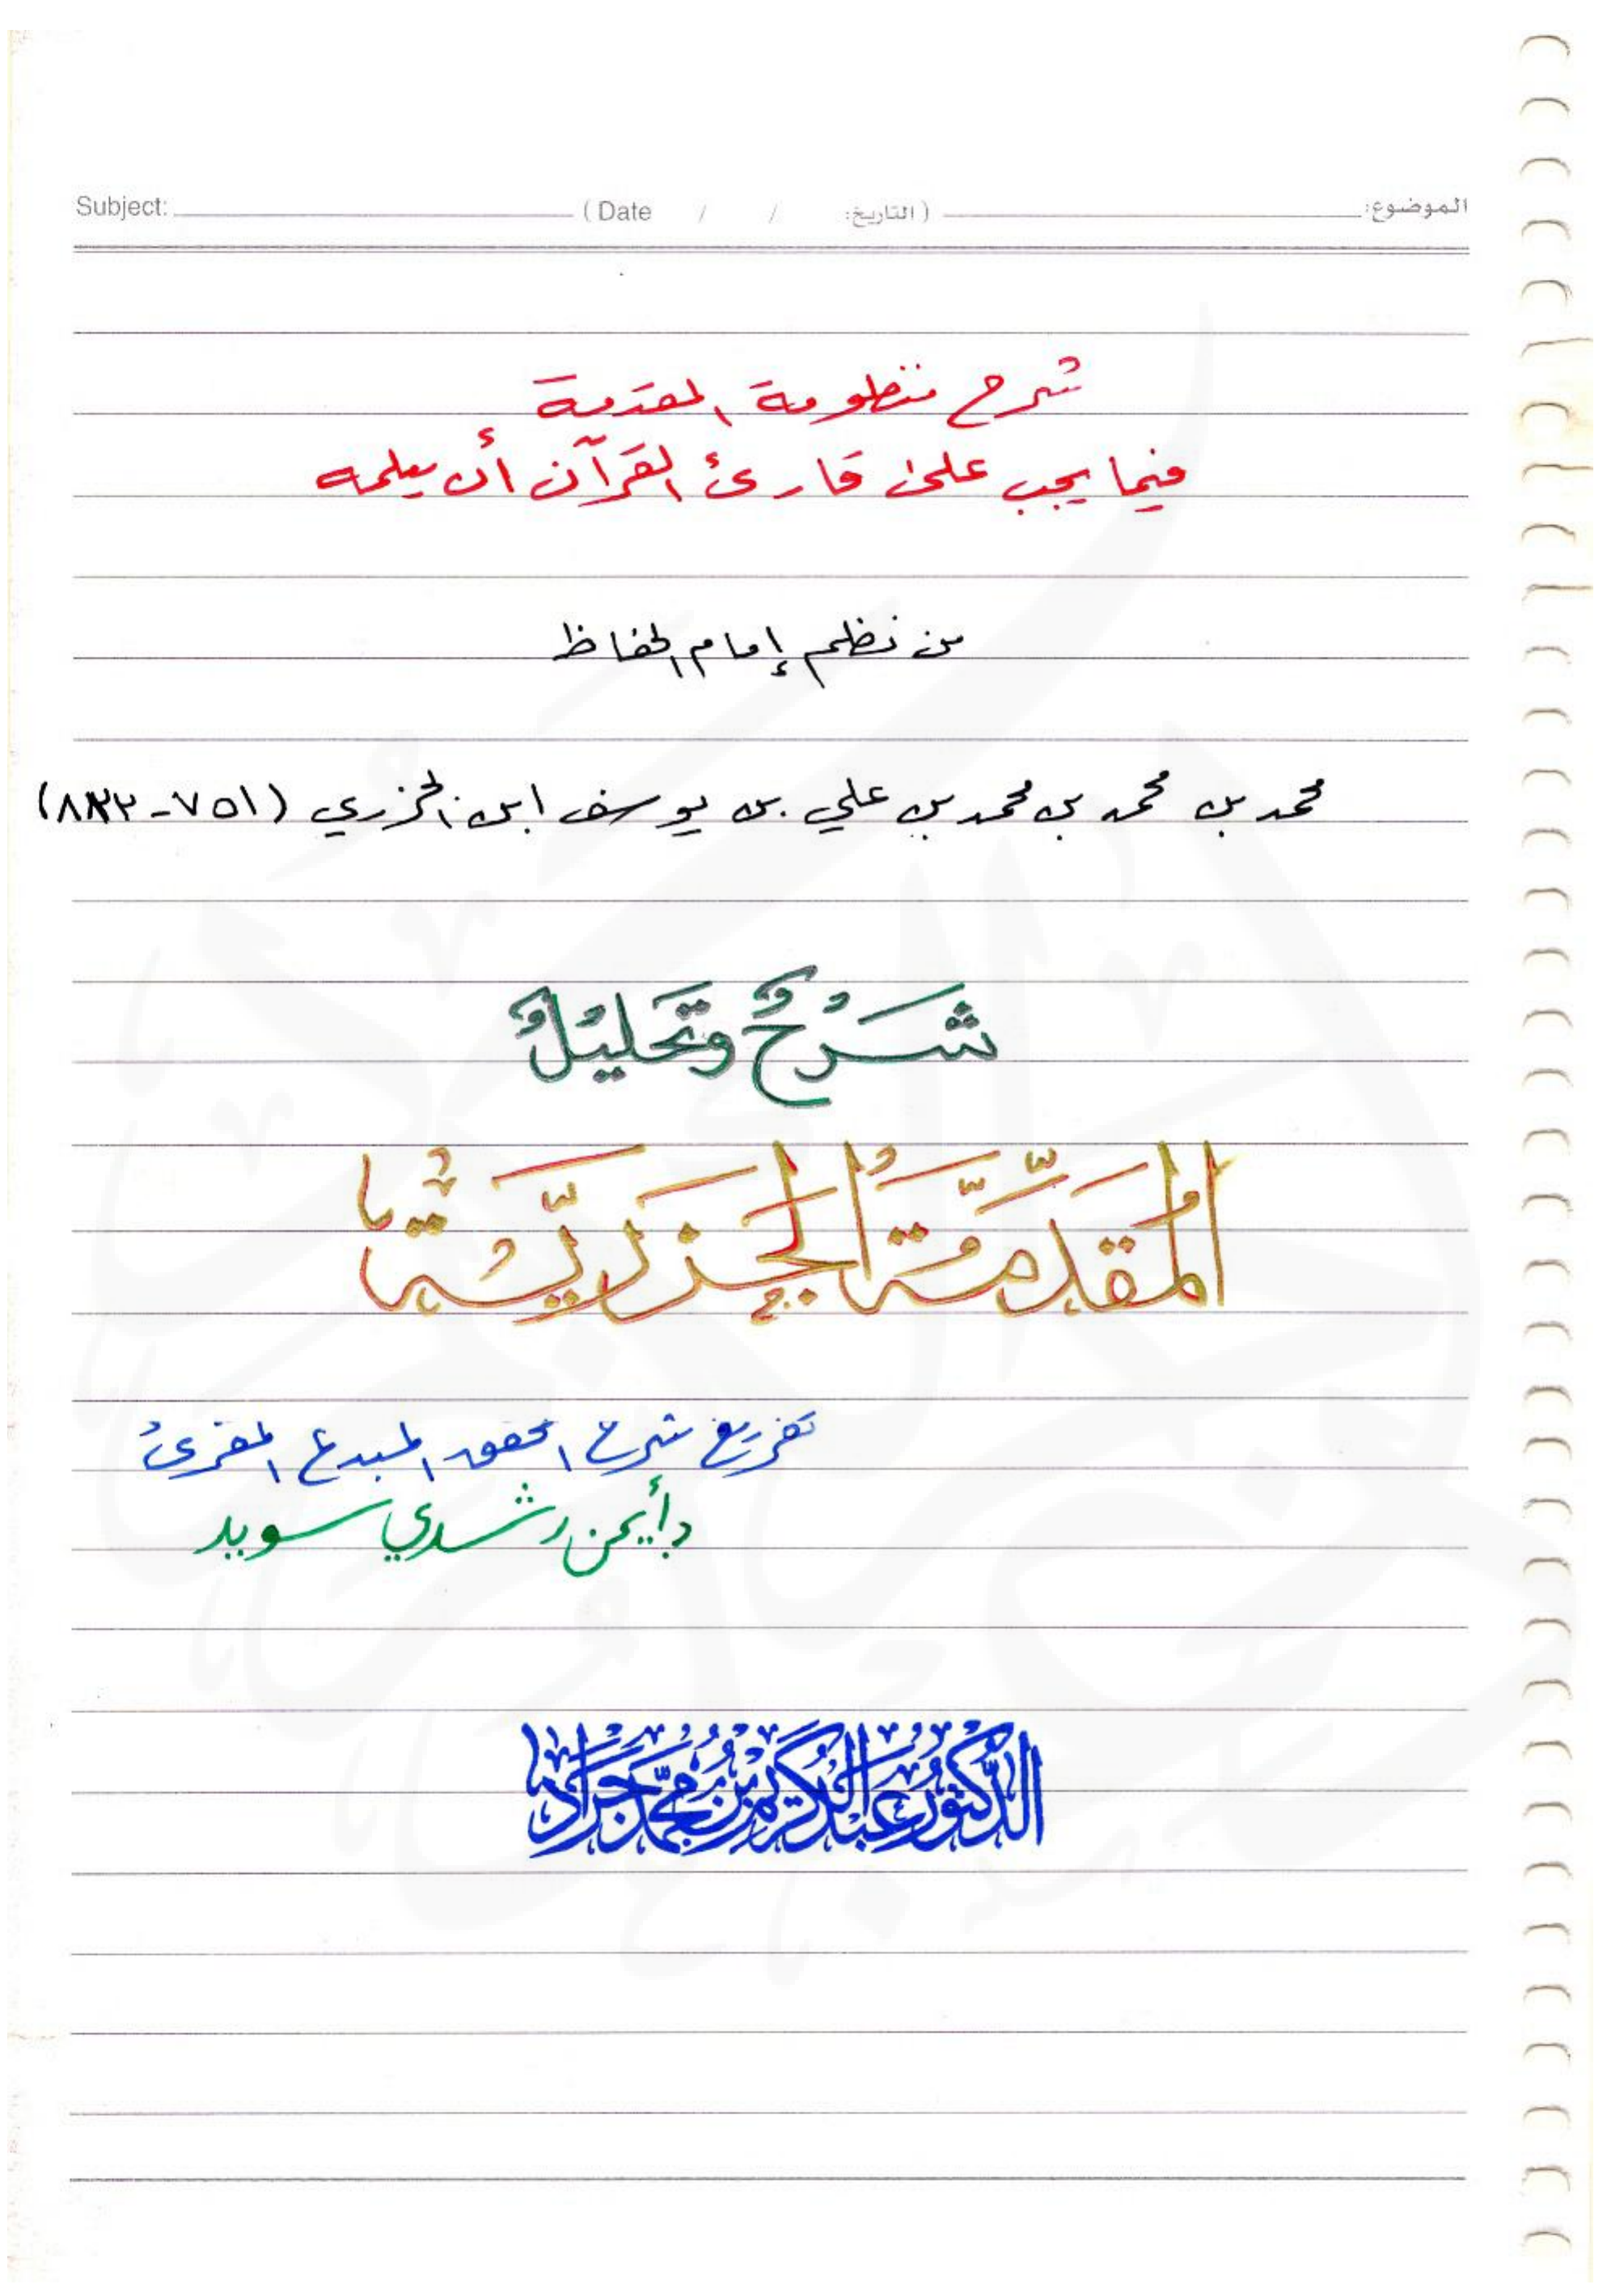 الموضوع: (التاريخ: / / Date) Subject:
شرح منظومة المقدمة
فيما يجب على قارئ القرآن أن يعلمه
من نظم إمام الحفاظ
محمد بن محمد بن محمد بن علي بن يوسف ابن الجزري (٧٥١-٨٣٣)
شَرْحٌ وتَحليْلٌ
المُقَدِّمَةُ الجَزَرِيَّةُ
تفريغ شرح المحقق المبدع المقرئ
د.أيمن رشدي سويد
الدكتور عبد الكريم بن محمد جراد